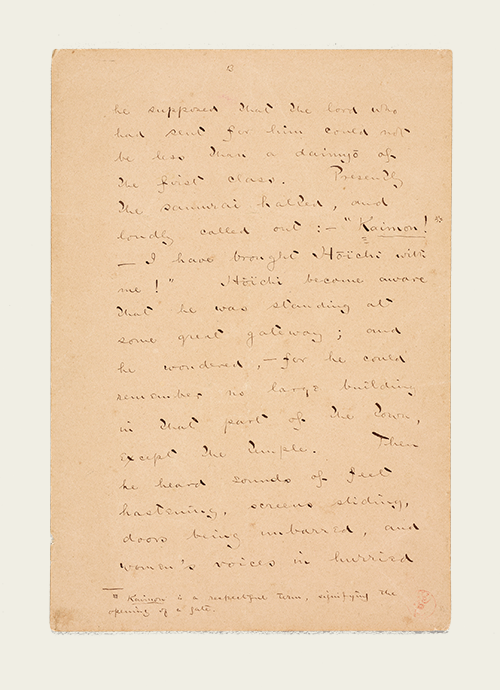 he supposed that the lord who
had sent for him could not
be less than a daimyō of
the first class. Presently
the samurai halted, and
loudly called out :— "Kaimon!*
— I have brought Hōïchi with
me!" Hōïchi became aware
that he was standing at
some great gateway; and
he wondered,— for he could
remember no large building
in that part of the town,
except the temple. Then
he heard sounds of feet
hastening, screens sliding,
doors being unbarred, and
women's voices in hurried
* Kaimon is a respectful term, signifying the
opening of a gate.